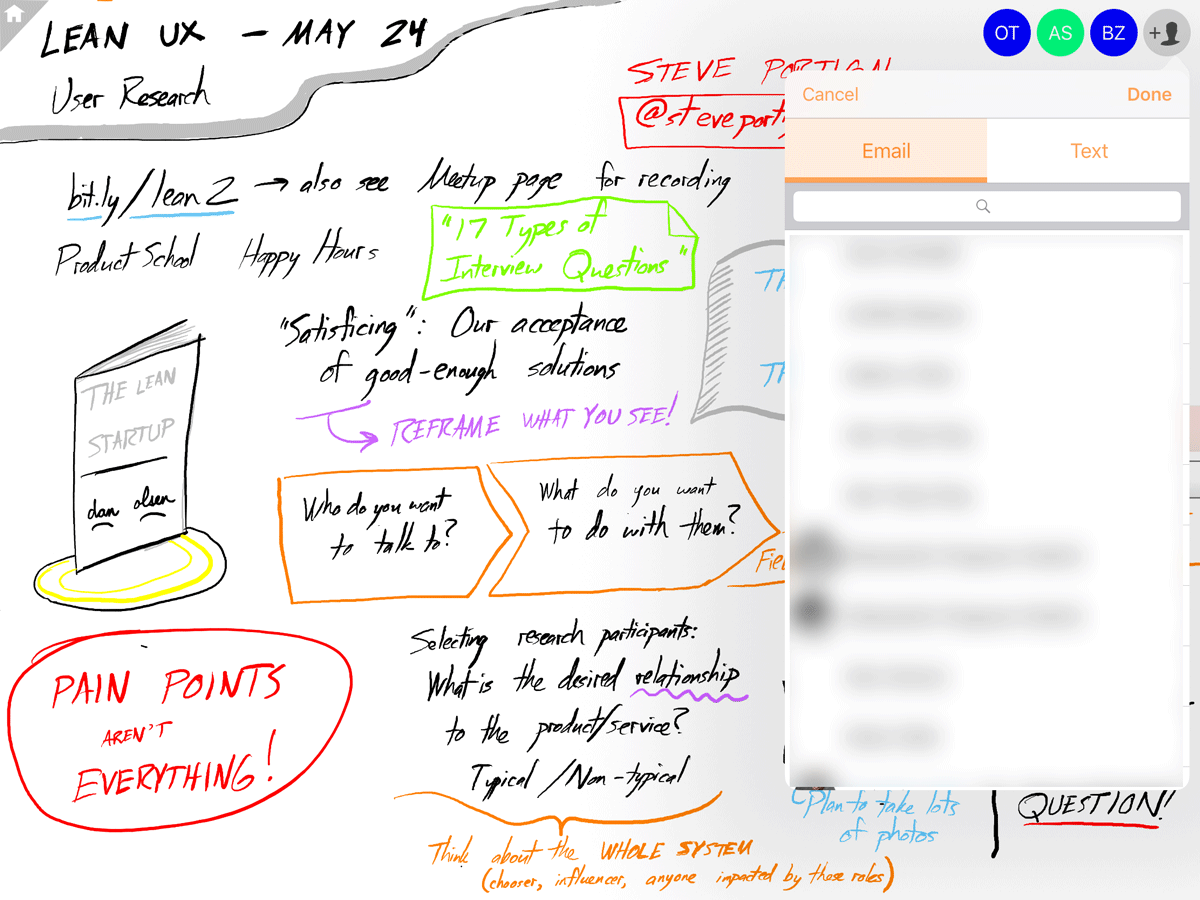 LEAN UX - MAY 24
User Research
OT
AS
BZ
STEVE
@steveport
Cancel
Done
Email
Text
bit.ly/lean2 → also see Meetup page for recording
Product School Happy Hours
"17 Types of
Interview Questions"
"Satisficing": Our acceptance
of good-enough solutions
REFRAME WHAT YOU SEE!
THE LEAN
STARTUP
dan olsen
Who do you want
to talk to?
What do you want
to do with them?
PAIN POINTS
AREN'T
EVERYTHING!
Selecting research participants:
What is the desired relationship
to the product/service?
Typical / Non-typical
Think about the WHOLE SYSTEM
(chooser, influencer, anyone impacted by these roles)
Plan to take lots
of photos
QUESTION!